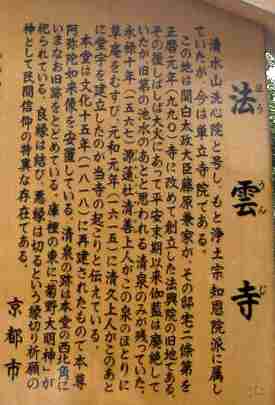 法雲寺
ほううんじ
清水山洗心院と号し、もと浄土宗知恩院派に属し
ていたが、今は単立寺院である。
この地は関白太政大臣藤原兼家が、その邸宅二條第を
正暦元年（九九〇）寺に改めて創立した法興院の旧地である。
その後しばしば大火にあって平安末期以来伽藍は廃絶して
いたが旧第の池水のあとと思われる清泉のみが残っていた。
永禄十年（一五六七）源蓮社清善上人がこの泉のほとりに
草庵をむすび、元和元年（一六一五）に清久上人がこのあと
に堂宇を建立したのが当寺の起こりと伝えている。
本堂は文化十五年（一八一八）に再建されたもので、本尊
阿弥陀如来像を安置している。清泉の跡は本堂の西北角に
いまなお旧跡をとどめている。庫裡の東に「菊野大明神」が
祀られている。良縁は結び、悪縁は切るという縁切り祈願の
神として民間信仰の特異な存在である。
京都市